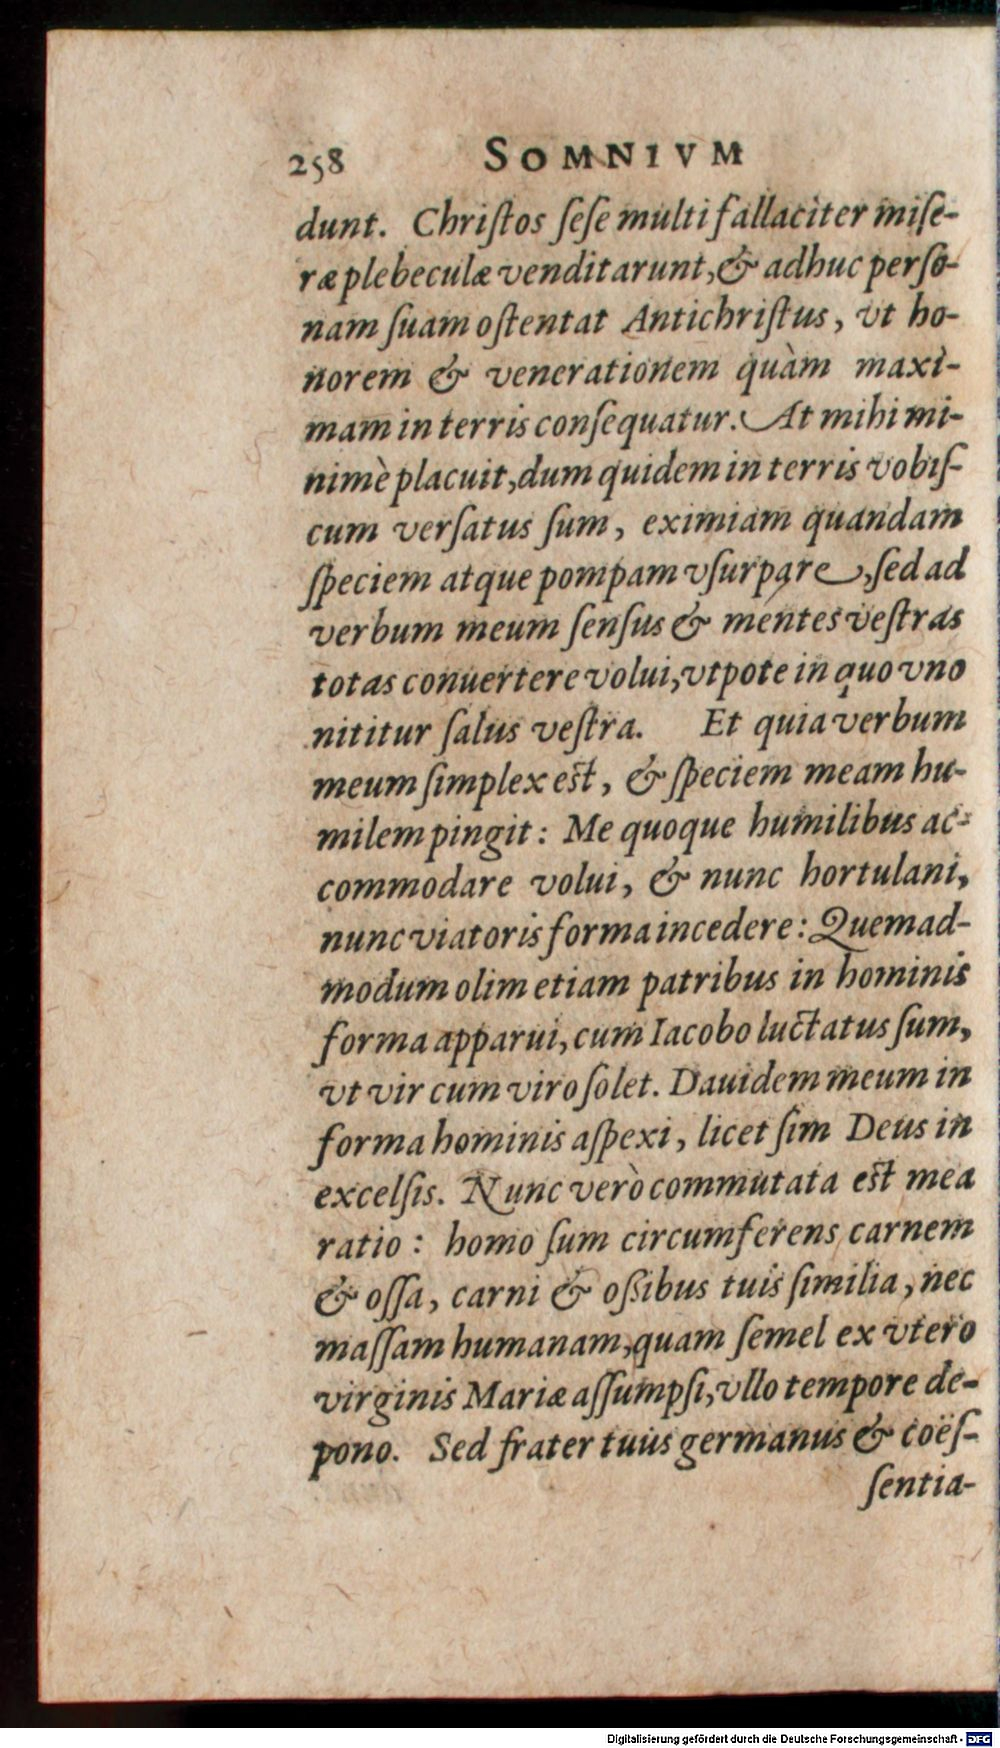 258 SOMNIVM
dunt. Chriſtos ſeſe multi fallaciter miſe-
ræ plebeculæ venditarunt, & adhuc perſo-
nam ſuam oſtentat Antichriſtus, vt ho-
norem & venerationem quàm maxi-
mam in terris conſequatur. At mihi mi-
nimè placuit, dum quidem in terris vobiſ-
cum verſatus ſum, eximiam quandam
ſpeciem atque pompam vſurpare, ſed ad
verbum meum ſenſus & mentes veſtras
totas conuertere volui, vtpote in quo vno
nititur ſalus veſtra. Et quia verbum
meum ſimplex est, & ſpeciem meam hu-
milem pingit: Me quoque humilibus ac-
commodare volui, & nunc hortulani,
nunc viatoris forma incedere: Quemad-
modum olim etiam patribus in hominis
forma apparui, cum Iacobo luctatus ſum,
vt vir cum viro ſolet. Dauidem meum in
forma hominis aſpexi, licet ſim Deus in
excelſis. Nunc verò commutata est mea
ratio: homo ſum circumferens carnem
& oſſa, carni & oſsibus tuis ſimilia, nec
maſſam humanam, quam ſemel ex vtero
virginis Mariæ aſſumpſi, vllo tempore de-
pono. Sed frater tuus germanus & coëſ-
ſentia-
Digitalisierung gefördert durch die Deutsche Forschungsgemeinschaft - DFG